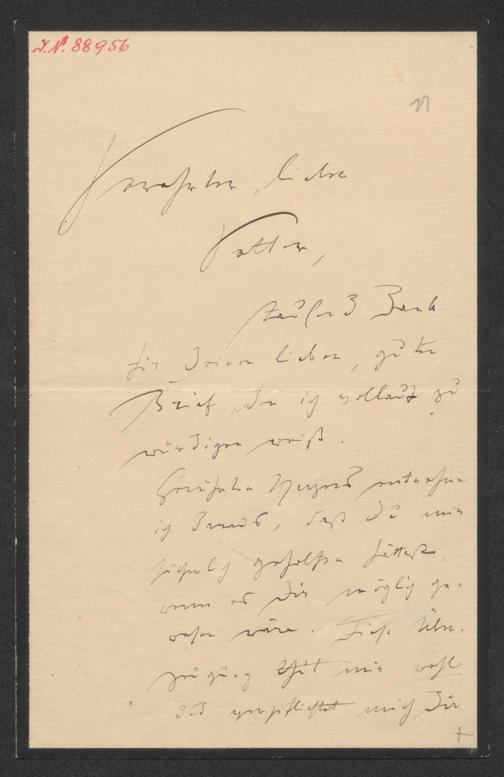 I.N. 88956
11
Verehrter, lieber
Vetter,
tausend Dank
für Deinen lieben, guten
Brief, den ich vollauf zu
würdigen weiß.
Herzens entnehme
ich daraus, daß Du mir
sicherlich geholfen hättest,
wenn es Dir möglich ge-
wesen wäre. Diese Über-
zeugung thut mir wohl
und verpflichtet mich Dir
+